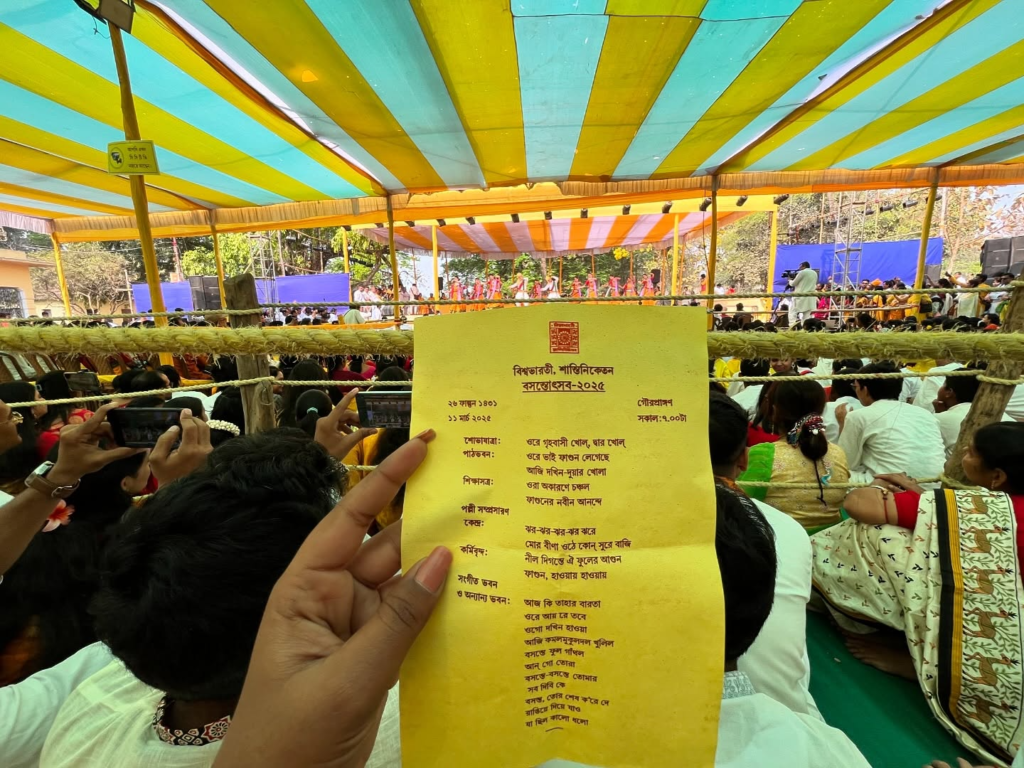 বিশ্বভারতী, শান্তিনিকেতন
বসন্তোৎসব-২০২৫
২৬ ফাল্গুন ১৪৩১ গৌরপ্রাঙ্গণ
১১ মার্চ ২০২৫ সকাল:৭.০০টা
শোভাযাত্রা: ওরে গৃহবাসী খোল্, দ্বার খোল্
পাঠভবন: ওরে ভাই ফাগুন লেগেছে
আজি দখিন-দুয়ার খোলা
শিক্ষাসত্র: ওরা অকারণে চঞ্চল
ফাগুনের নবীন আনন্দে
পল্লী সম্প্রসারণ
কেন্দ্র: ঝর-ঝর-ঝর-ঝর ঝরে
মোর বীণা ওঠে কোন্ সুরে বাজি
কর্মিবৃন্দ: নীল দিগন্তে ঐ ফুলের আগুন
ফাগুন, হাওয়ায় হাওয়ায়
সংগীত ভবন
ও অন্যান্য ভবন: আজ কি তাহার বারতা
ওরে আয় রে তবে
ওগো দখিন হাওয়া
আজি কমলমুকুলদল খুলিল
বসন্তে ফুল গাঁথল
আন্ গো তোরা
বসন্তে-বসন্তে তোমার
সব দিবি কে
বসন্ত, তোর শেষ ক'রে দে
রাঙিয়ে দিয়ে যাও
যা ছিল কালো ধলো